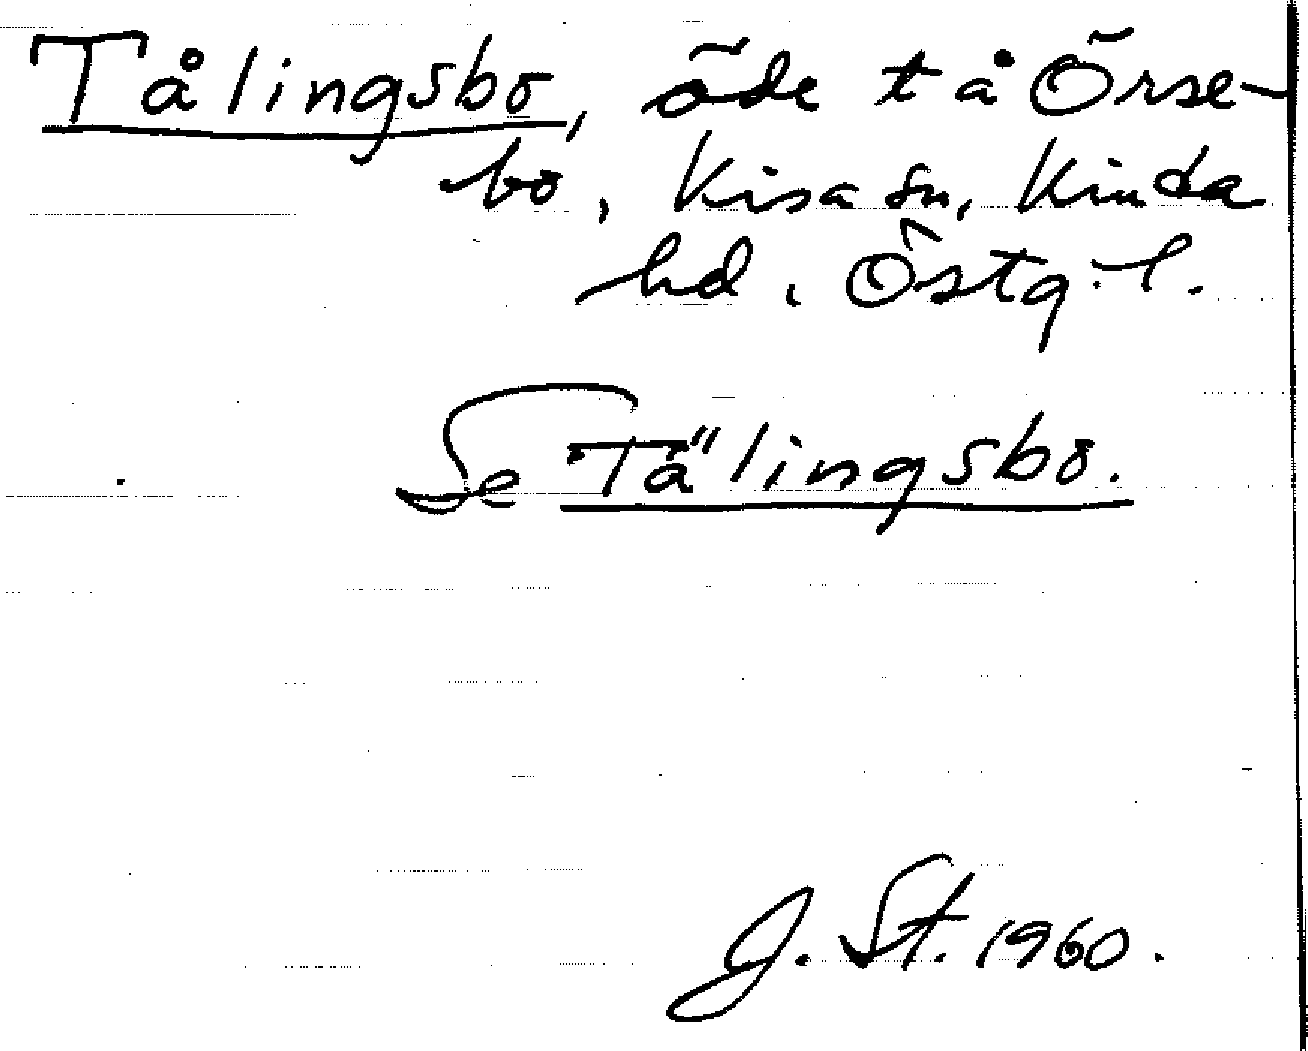 Tålingsbo, öde tå Örse-
bo, Kisa sn, Kinda
hd, Östg. l.
Se Tälingsbo.
J. St. 1960.